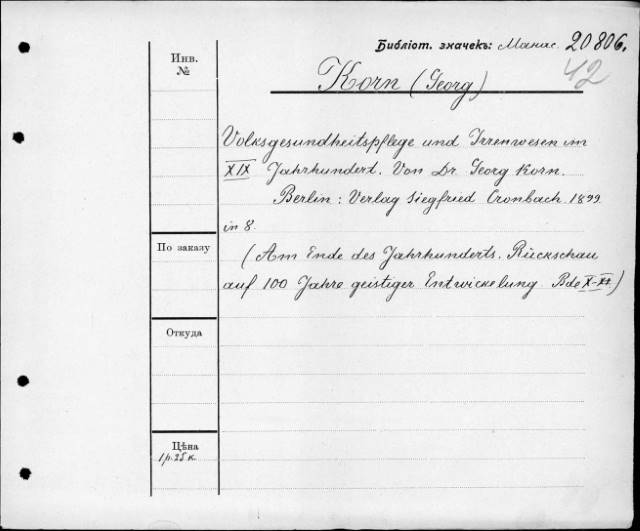 Библіот. значекъ: Манас. 20806.
42
Инв.
№
Korn (Georg)
Volksgesundheitspflege und Irrenwesen im
XIX Jahrhundert. Von Dr. Georg Korn.
Berlin: Verlag Siegfried Cronbach. 1899
in 8.
По заказу
(Am Ende des Jahrhunderts. Rückschau
auf 100 Jahre geistiger Entwickelung. Bde X-XI.)
Откуда
Цѣна
1 р. 25 к.